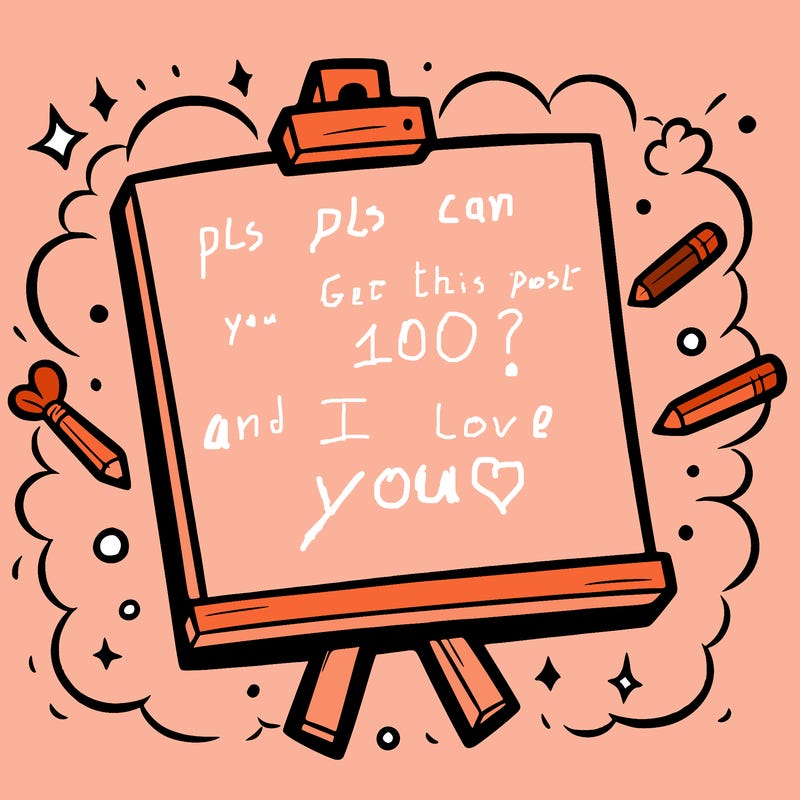 pLs pLs can
you Get this post
100?
and I Love
you♡